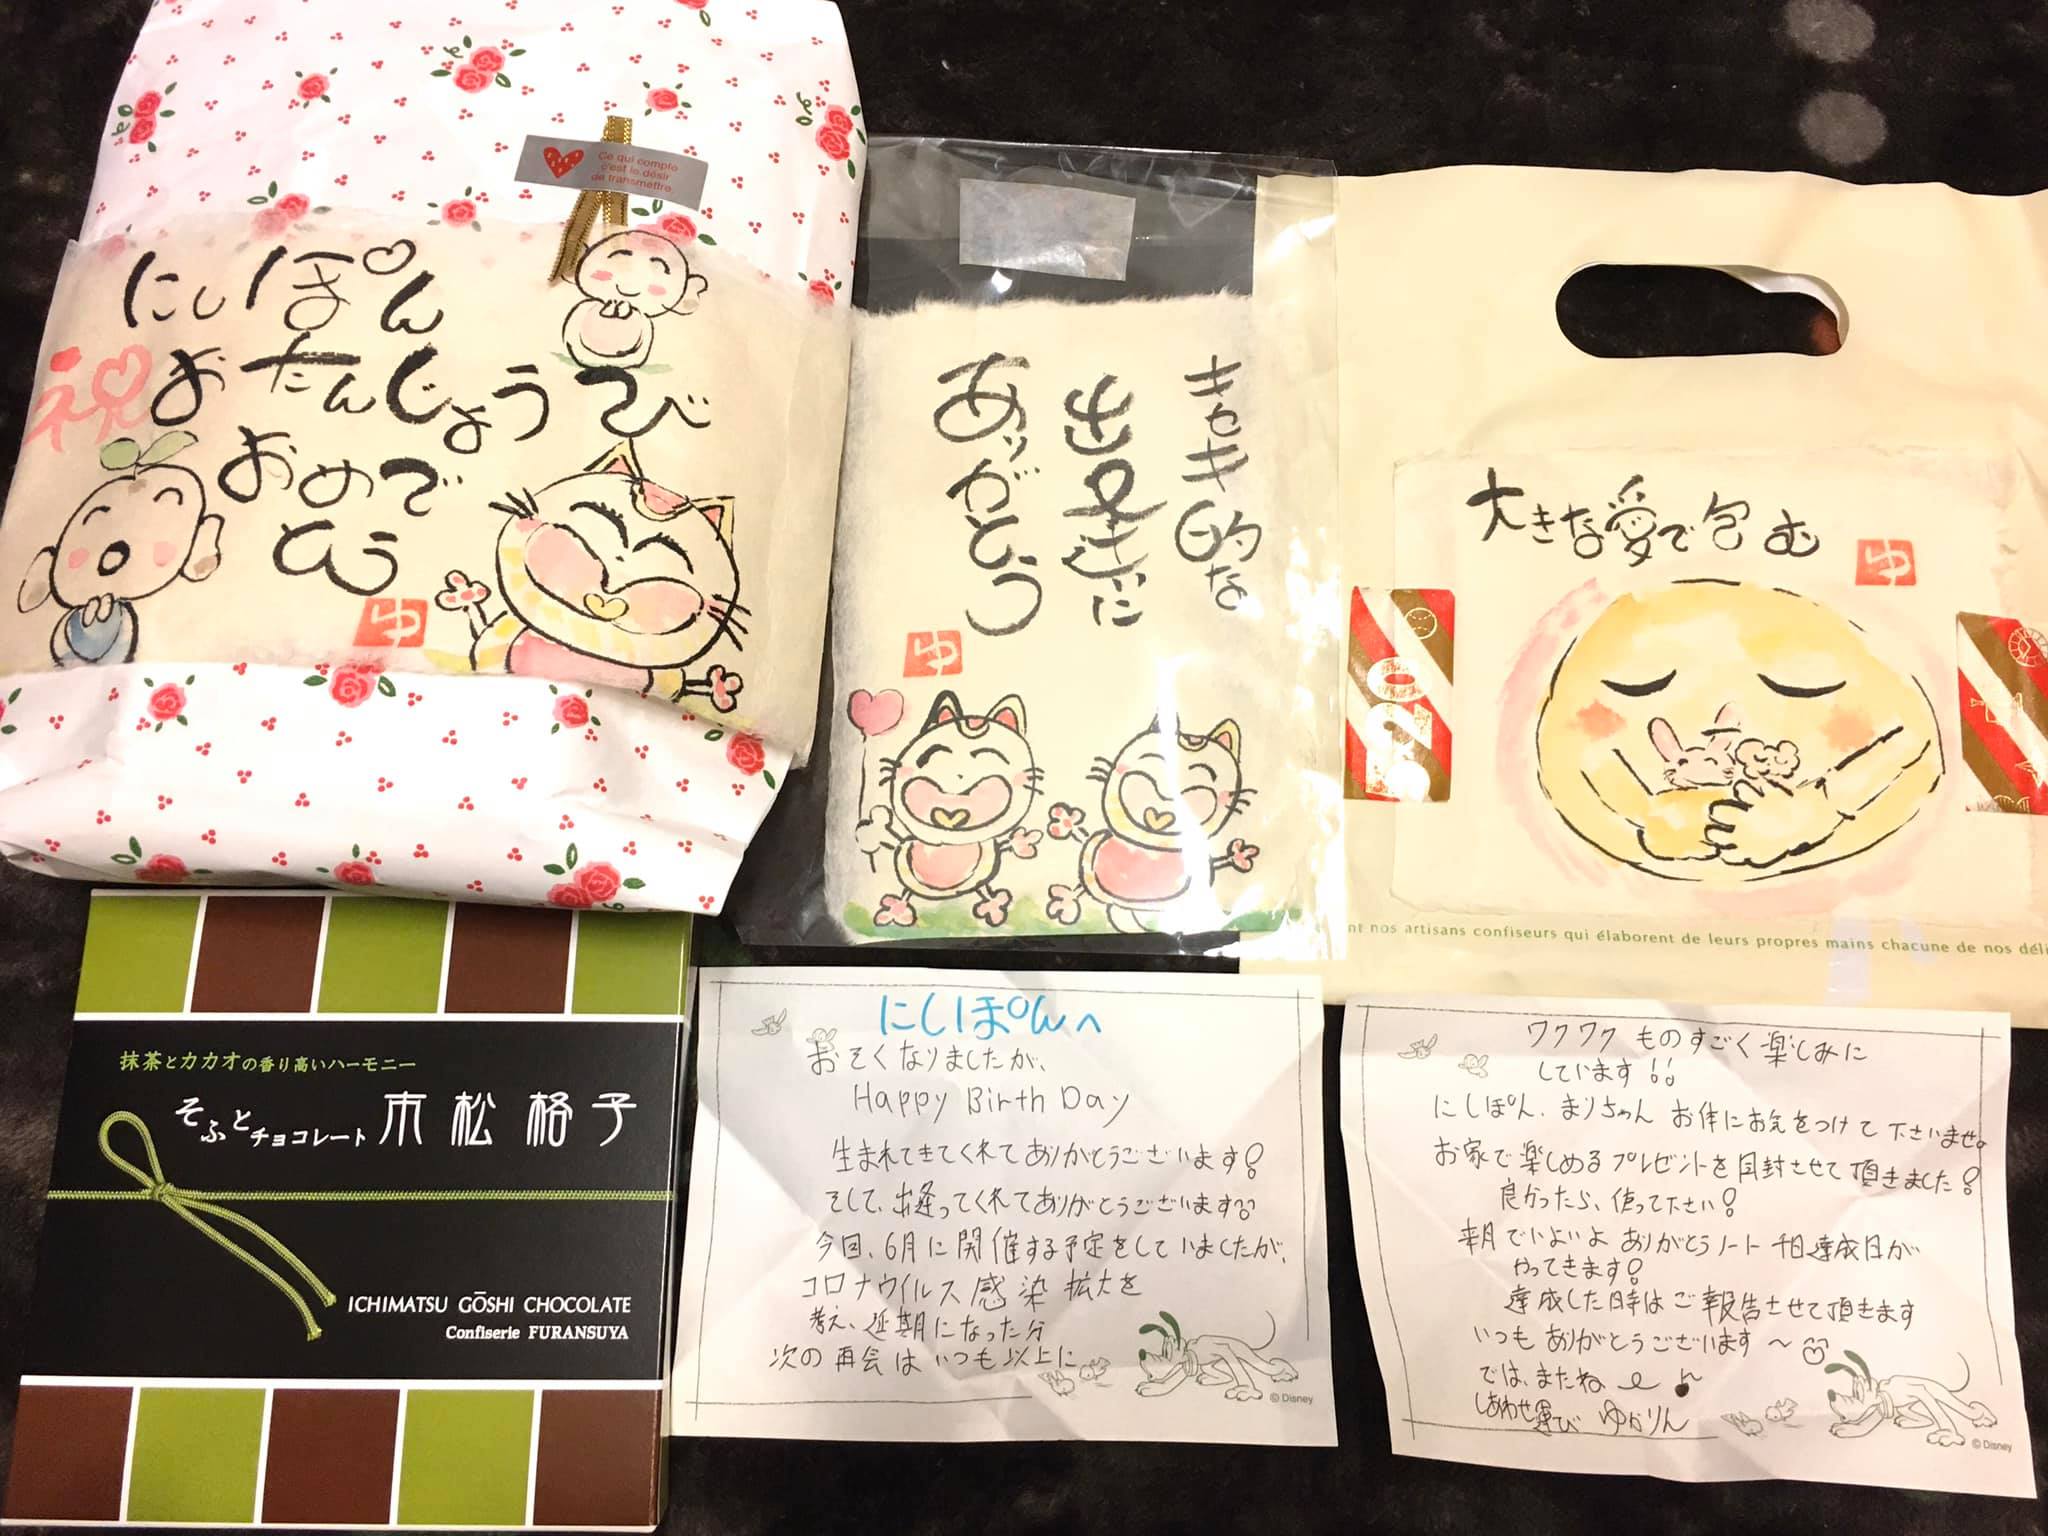 Ce qui compte
c'est le désir
de transmettre.
にしぽん
祝 おたんじょうび
おめで
とう
ゆ
キセキ的な
出逢いに
ありがとう
ゆ
大きな愛で包む
ゆ
nt nos artisans confiseurs qui élaborent de leurs propres mains chacune de nos déli
抹茶とカカオの香り高いハーモニー
そふとチョコレート 市松格子
ICHIMATSU GŌSHI CHOCOLATE
Confiserie FURANSUYA
にしぽんへ
おそくなりましたが、
Happy Birth Day
生まれてきてくれてありがとうございます!
そして、出逢ってくれてありがとうございます!!
今回、6月に開催する予定をしていましたが、
コロナウイルス感染拡大を
考え、延期になった分
次の再会はいつも以上に
© Disney
ワクワク ものすごく楽しみに
しています!!
にしぽん、まりちゃん お体にお気をつけて下さいませ。
お家で楽しめるプレゼントを同封させて頂きました!
良かったら、使って下さい!
来月でいよいよ ありがとうノート 千日達成日が
やってきます!
達成した時はご報告させて頂きます
いつもありがとうございます〜
では、またね
しあわせ運び ゆかりん
© Disney